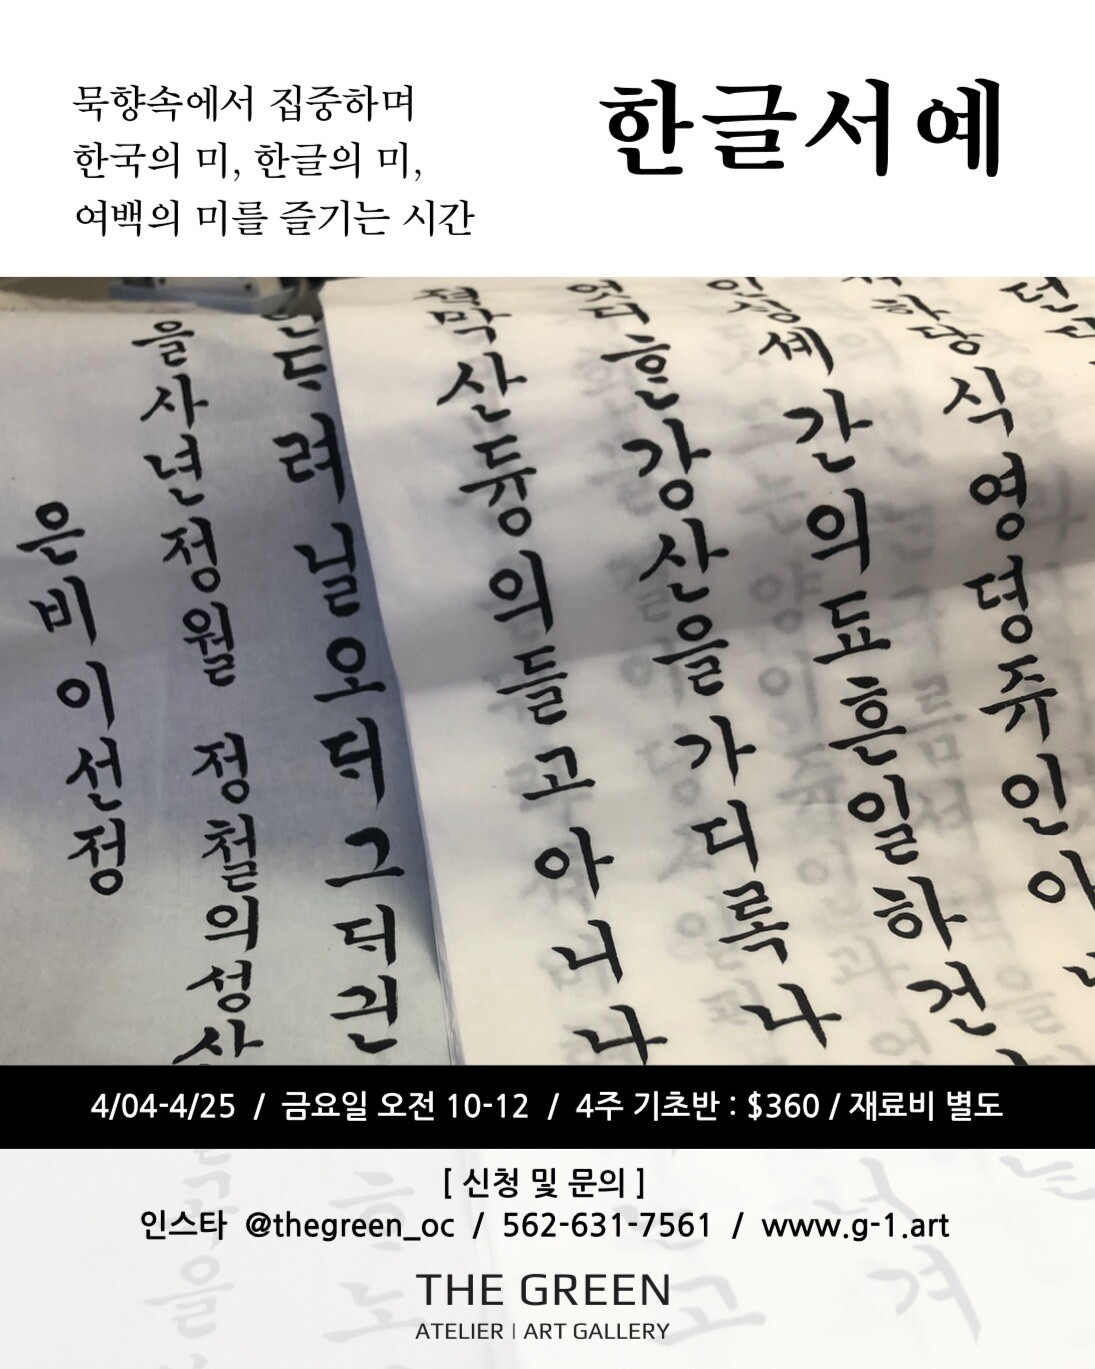 묵향속에서 집중하며
한국의 미, 한글의 미,
여백의 미를 즐기는 시간
한글서예
식영뎡쥬인아
셰간의됴흔일하건
흔강산을가디록나
적막산듕의들고아니나
려닐오되그되긘
을사년정월 정철의성사
은비이선정
4/04-4/25 / 금요일 오전 10-12 / 4주 기초반 : $360 / 재료비 별도
[ 신청 및 문의 ]
인스타 @thegreen_oc / 562-631-7561 / www.g-1.art
THE GREEN
ATELIER | ART GALLERY